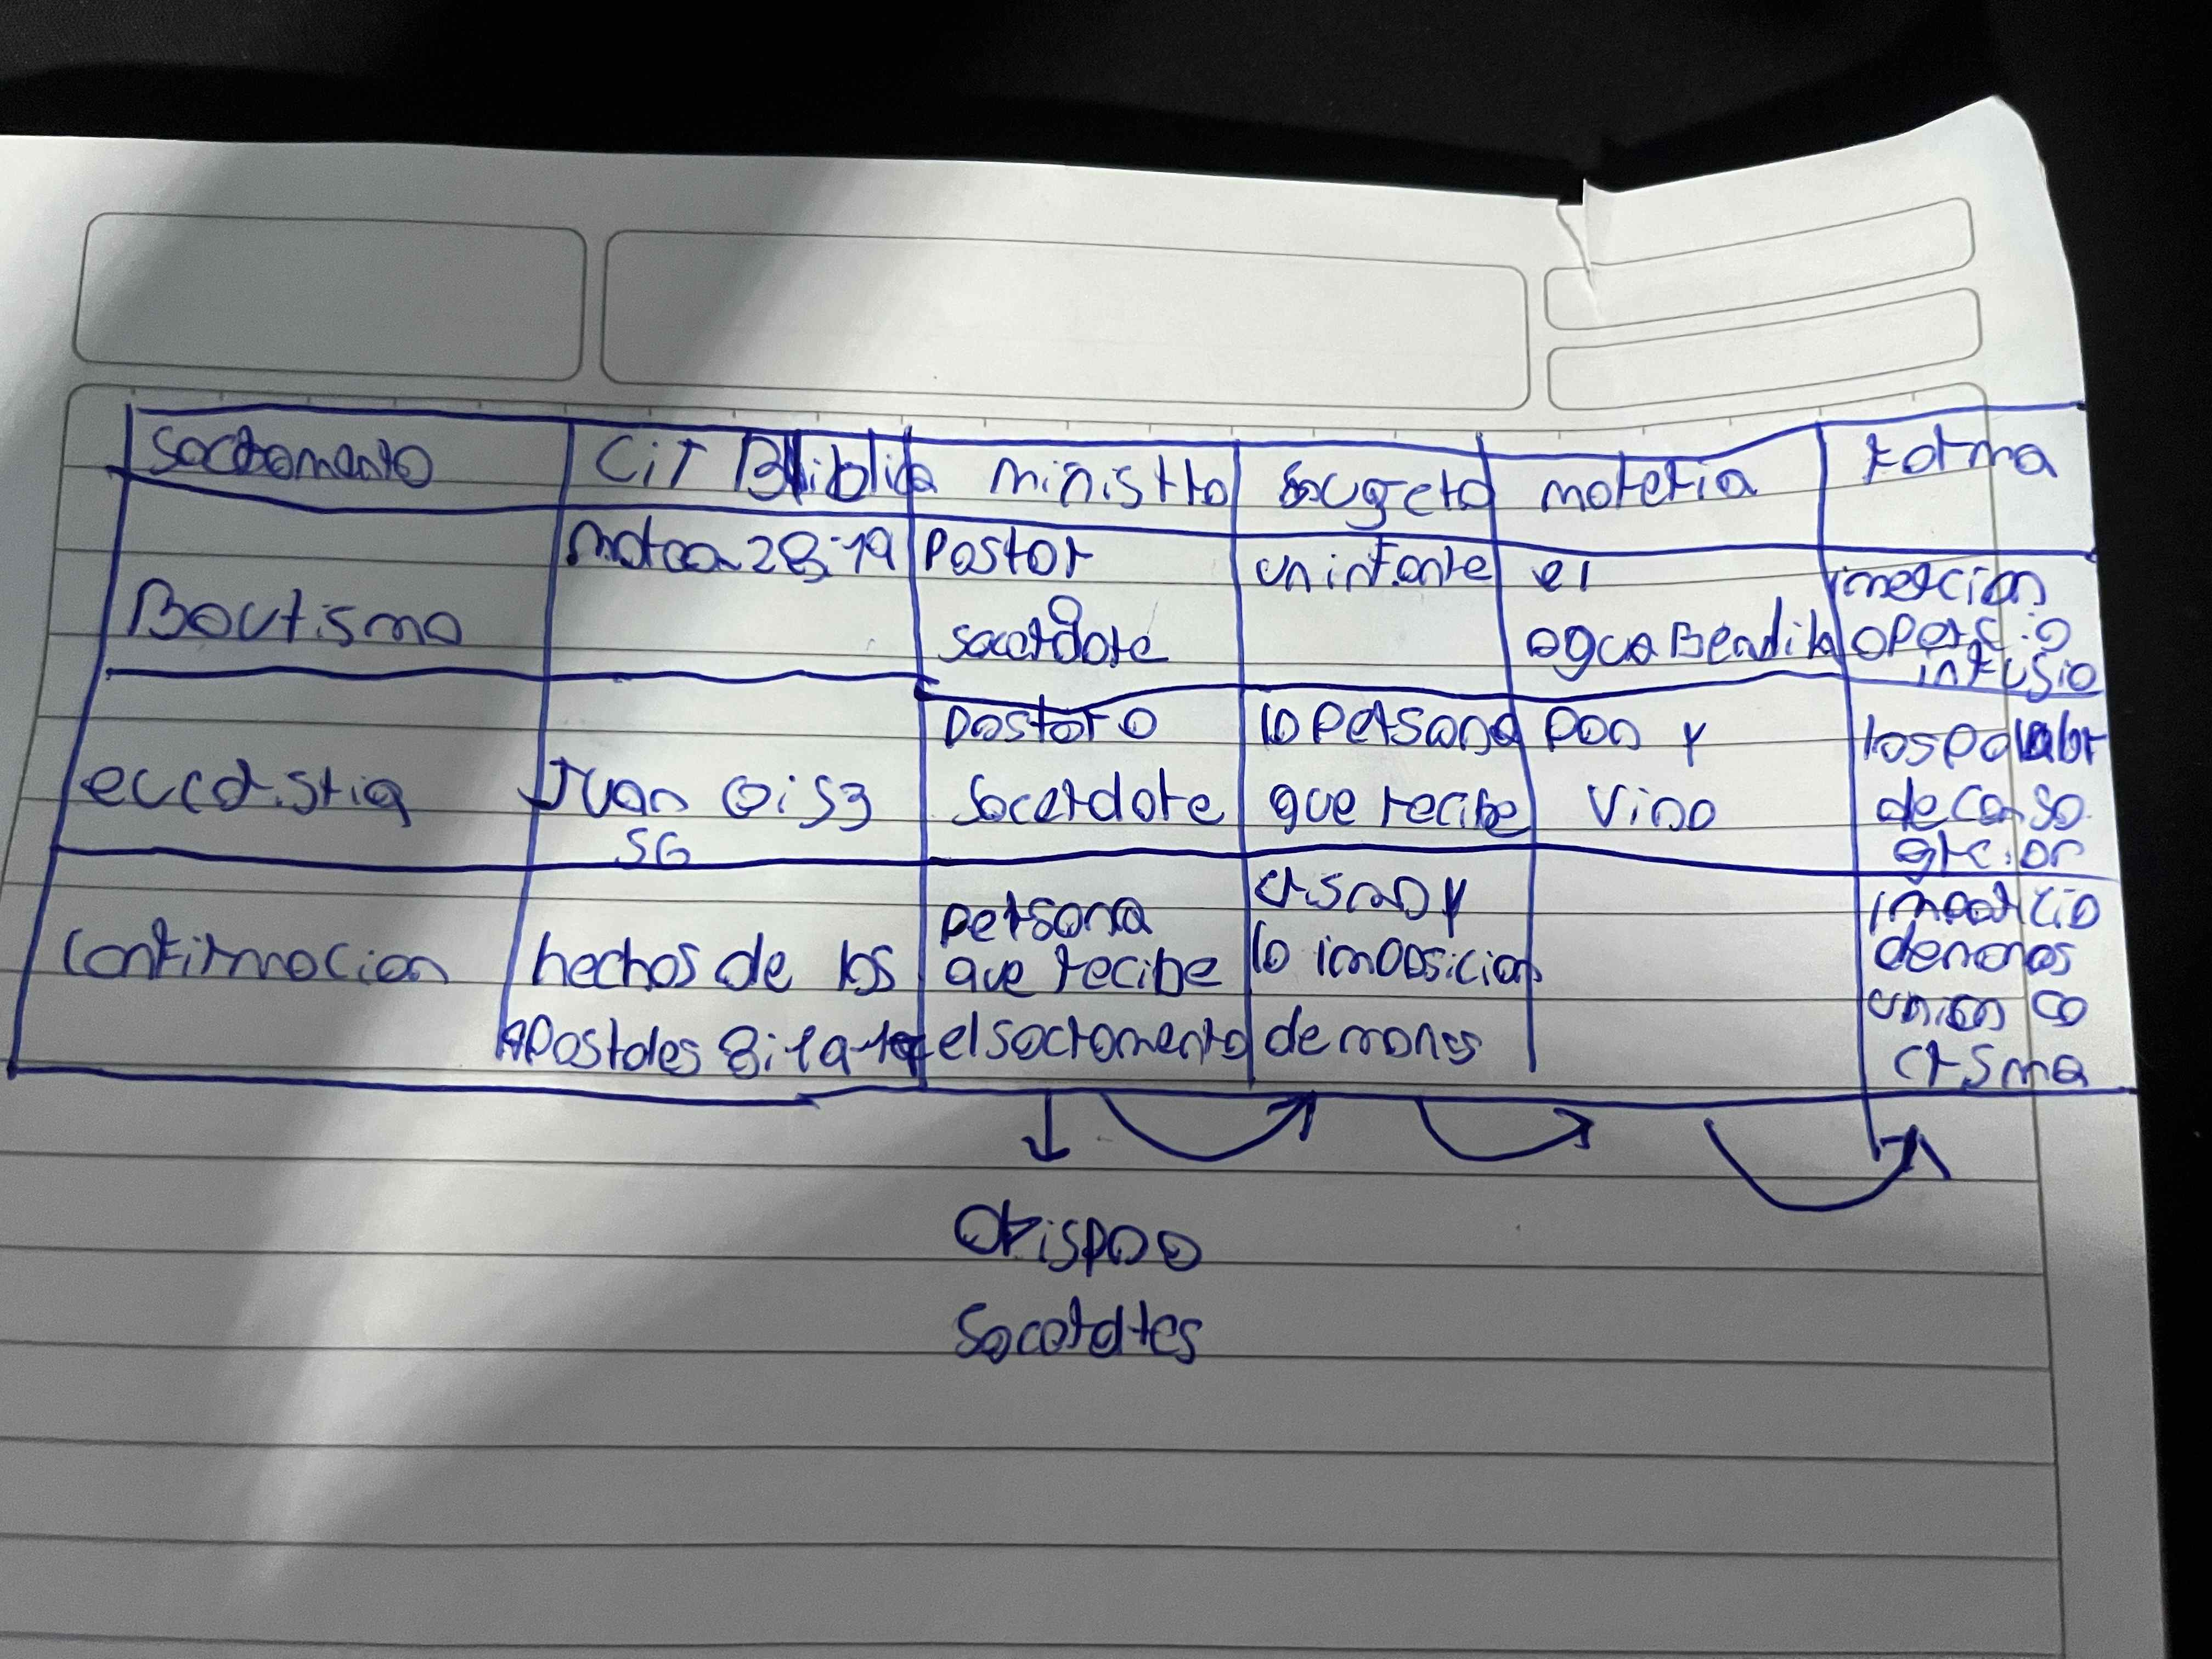 sacramento CiT Biblica ministro sugeto materia forma
Bautismo
28:19
Pastor
o
sacerdote
un infante
el
agua Bendita
infusio
eucaristia
Juan 6:53
56
Pastor o
sacerdote
la Persona
que recibe
Pan y
vino
las palabr
de consa
gracion
confirmacion
hechos de los
Apostoles
Persona
que recibe
el sacramento
crisma y
la imposicion
de manos
de manos
uncion co
crisma
Obispo o
Sacerdtes